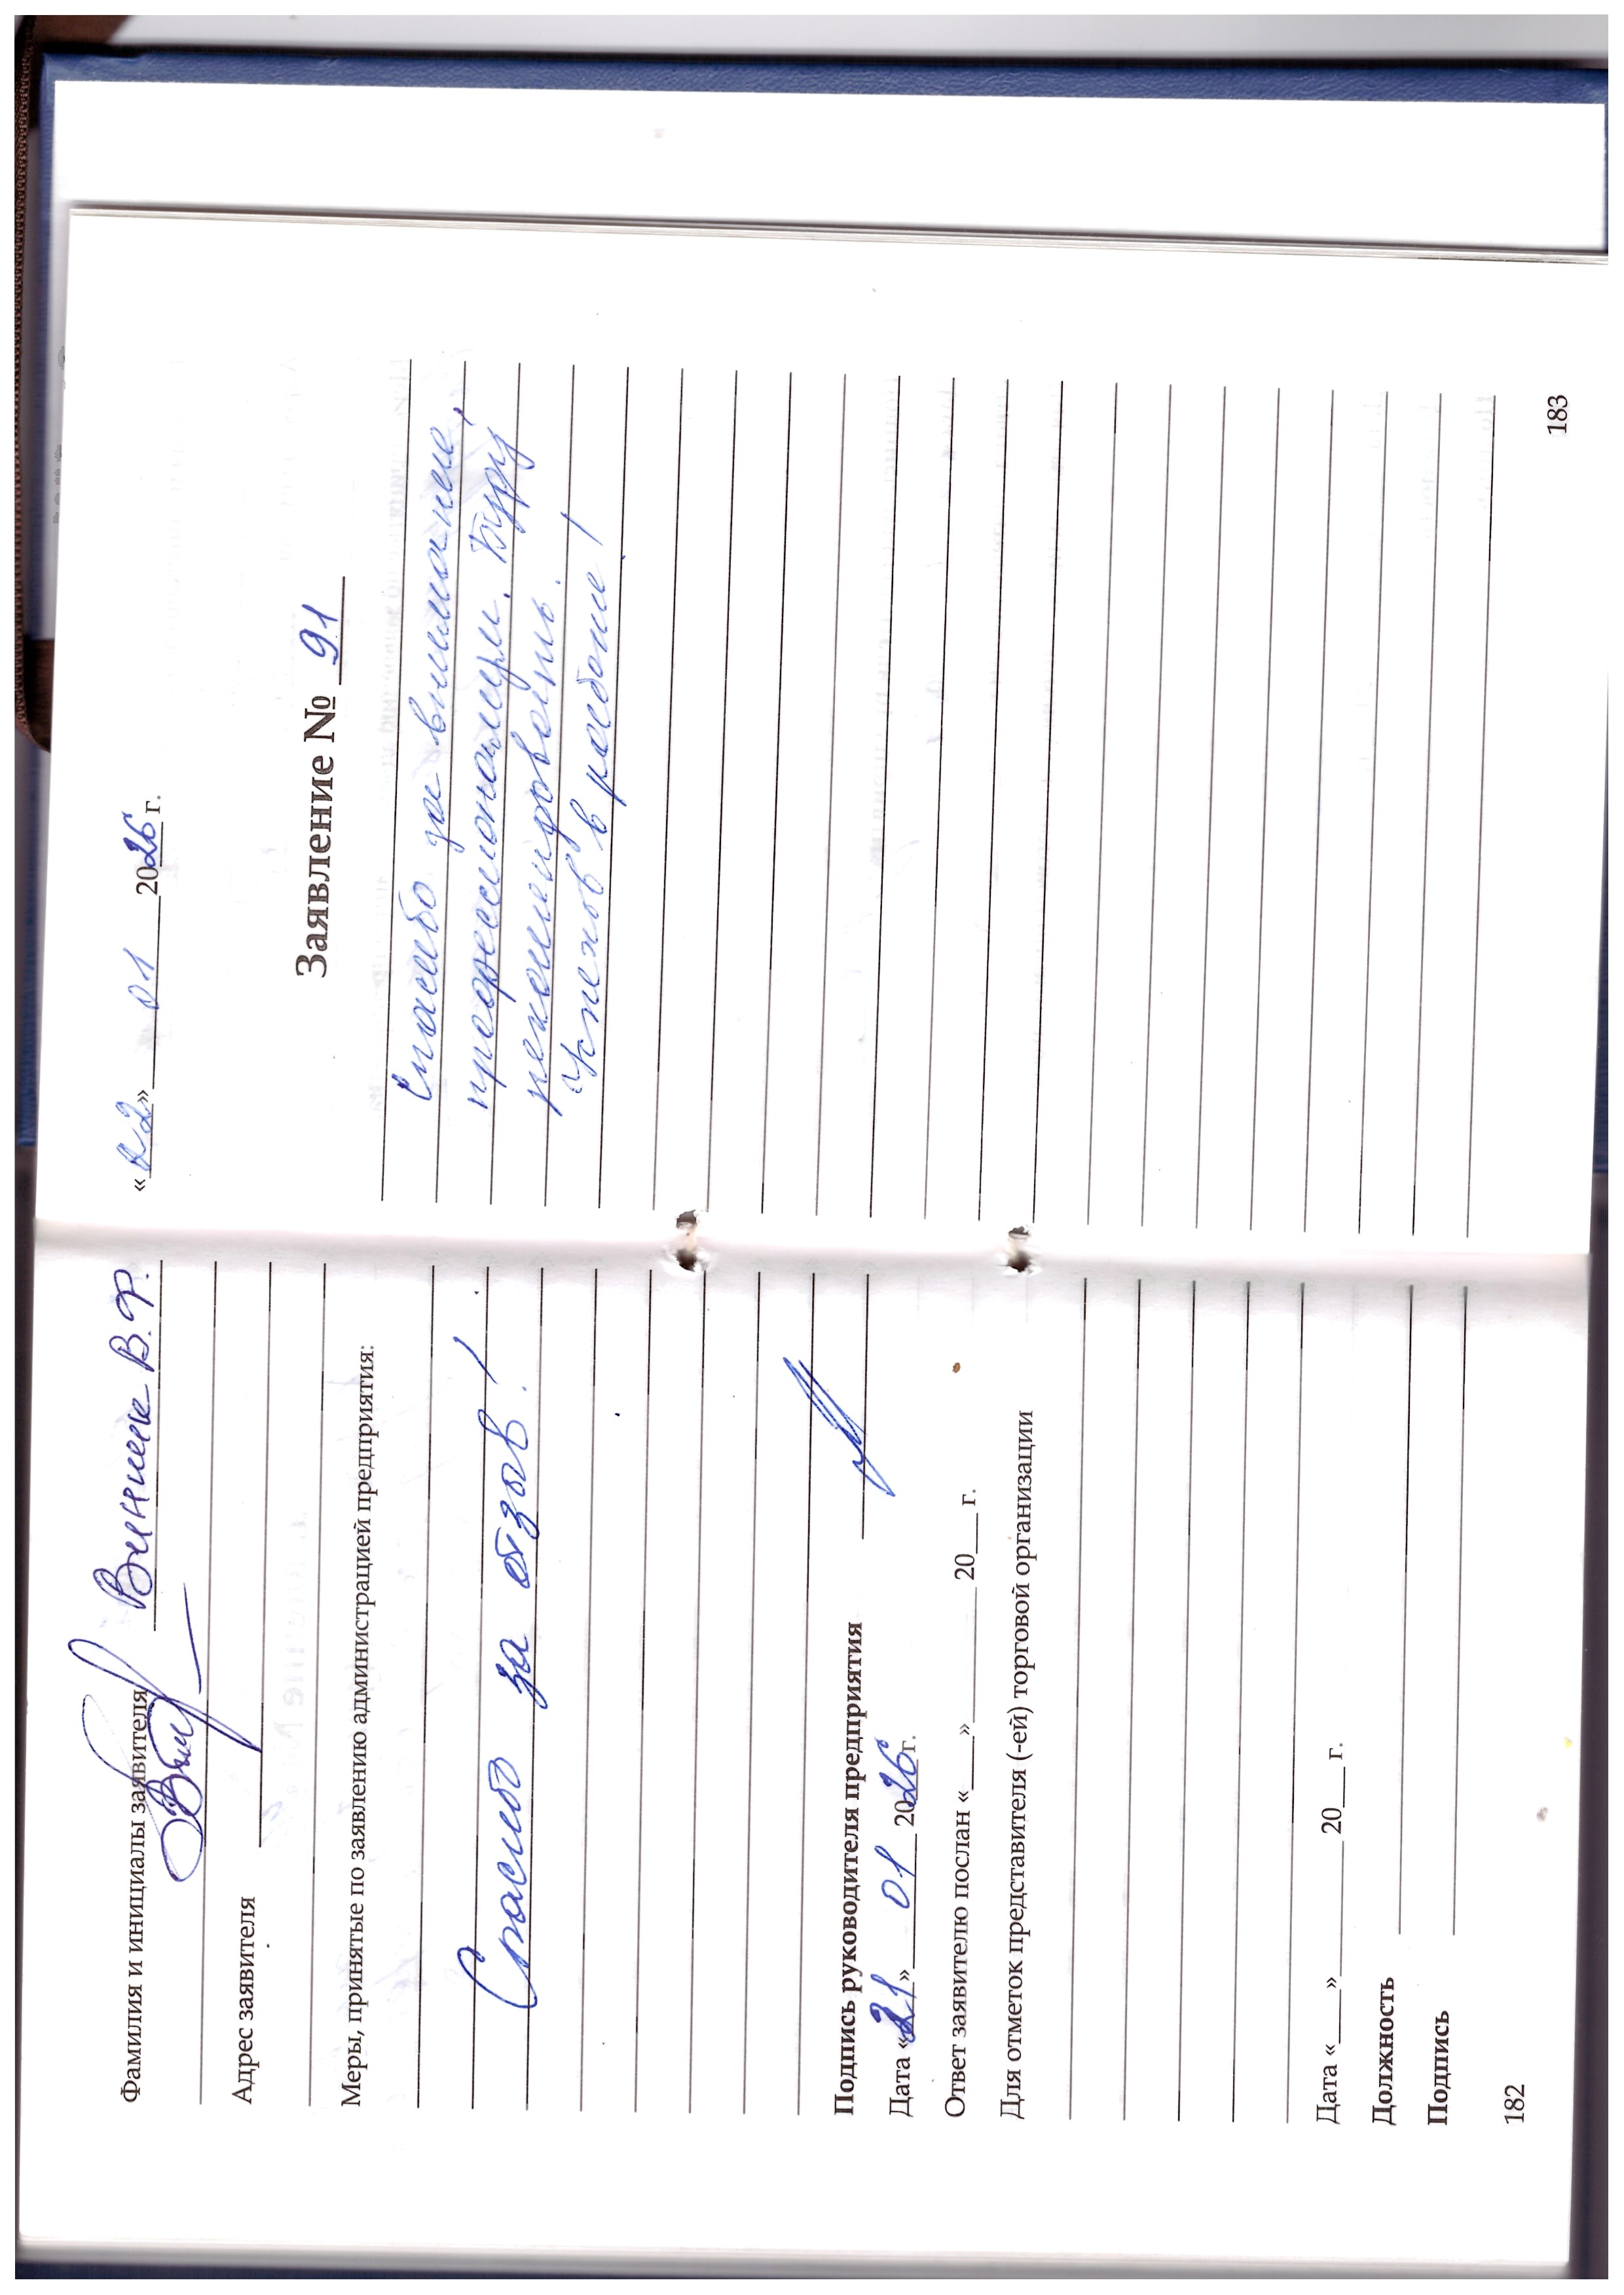 Фамилия и инициалы заявителя Винник В.Ф.
Адрес заявителя
Меры, принятые по заявлению администрацией предприятия:
Спасибо за отзыв!
Подпись руководителя предприятия
Дата «21» 01 2026г.
Ответ заявителю послан «___»________ 20___ г.
Для отметок представителя (-ей) торговой организации
Дата «___»________ 20___ г.
Должность
Подпись
182
«22» 01 2026 г.
Заявление № 91
Спасибо за внимание,
профессионализм. Буду
рекомендовать.
Успехов в работе!
183